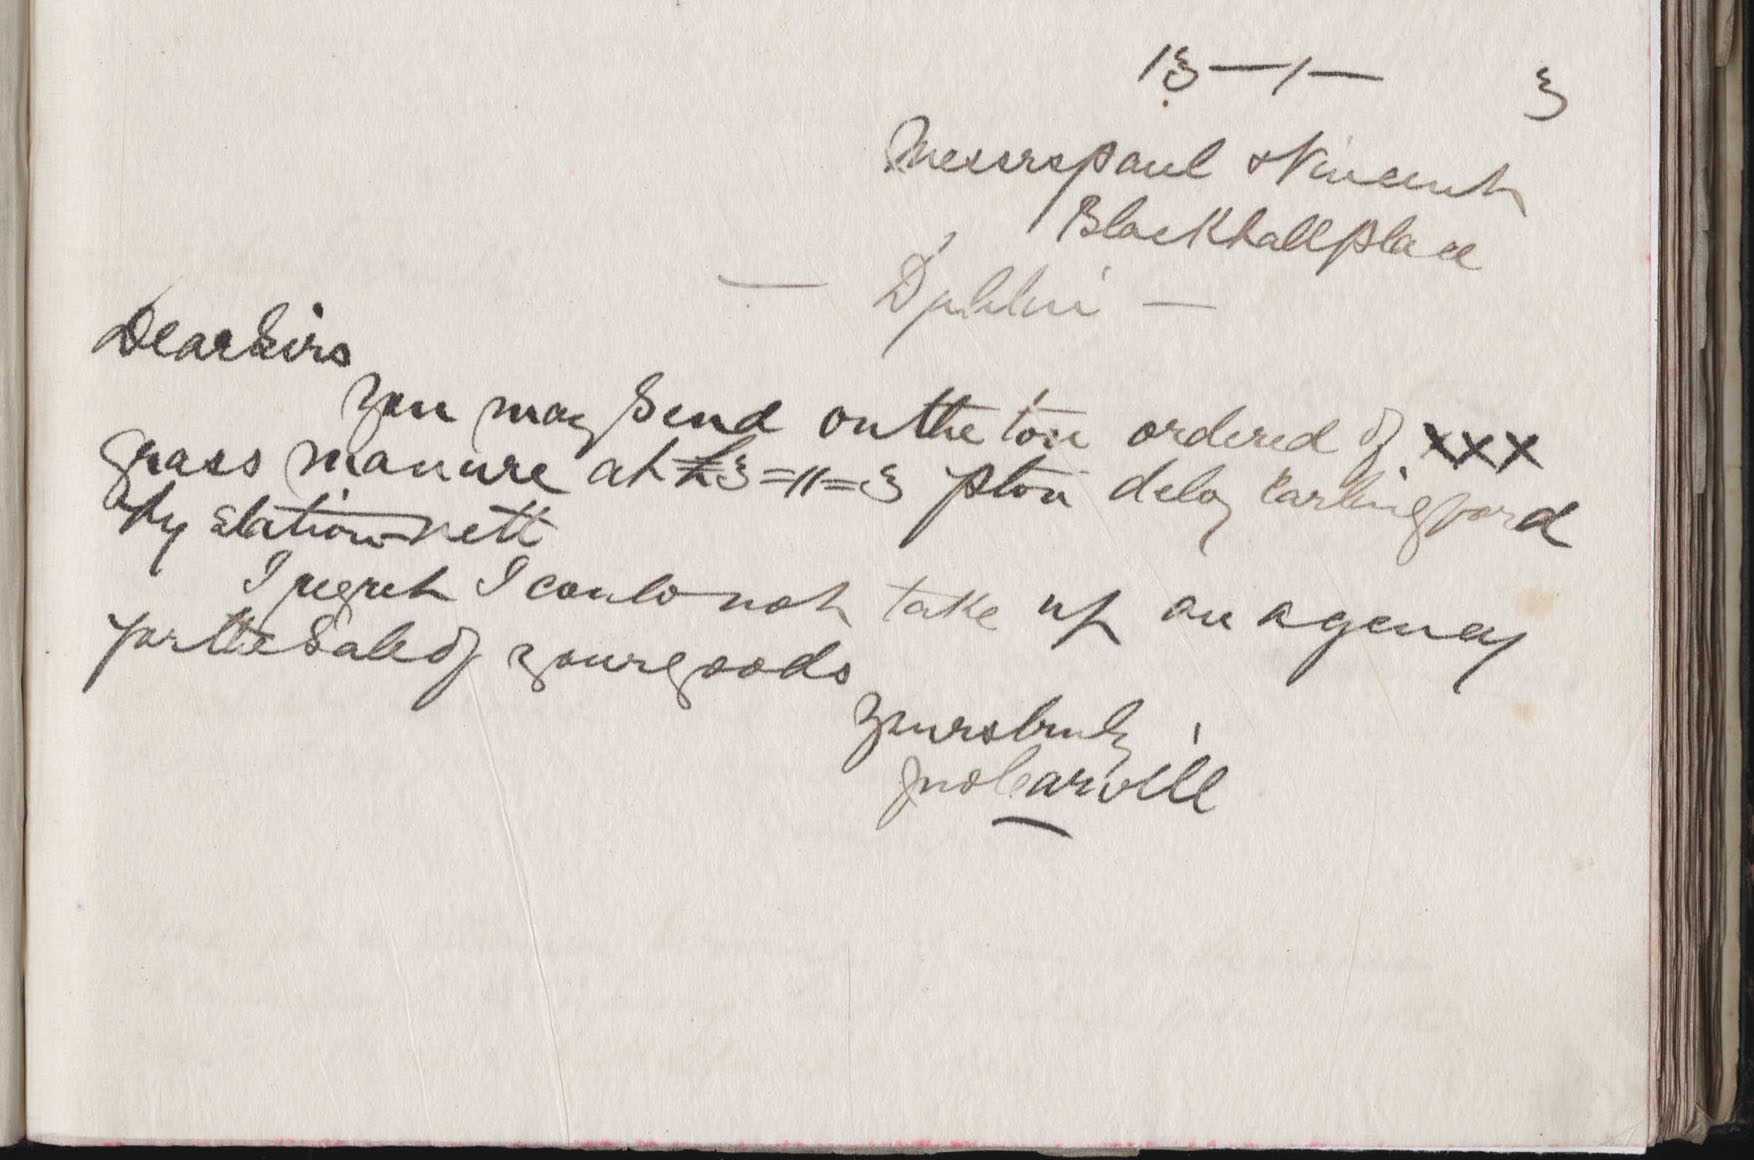 13 — 1 — 3
Messrs Paul & Vincent
Blackhall Place
— Dublin —
Dear Sirs
You may send on the ton ordered of XXX
grass manure at £3=11=3 p ton dely Carlingford
Ry Station nett
I regret I could not take up an agency
for the sale of your goods
Yours truly
Jno Carvill